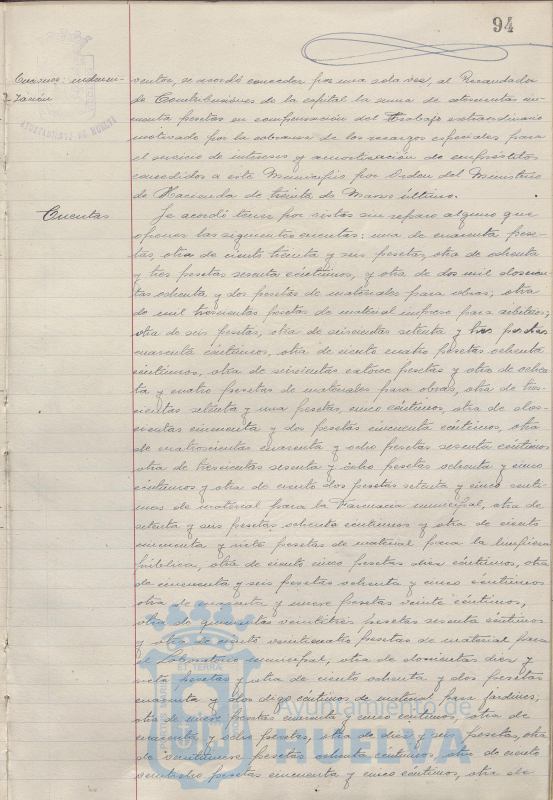 94
AYUNTAMIENTO DE HUELVA
ventor, se acordó conceder por una sola vez, al Recaudador
de Contribuciones de la capital la suma de doscientas cin-
cuenta pesetas en compensación del trabajo extraordinario
motivado por la cobranza de los recargos especiales para
el servicio de intereses y amortización de empréstitos
concedidos a este Municipio por Orden del Ministerio
de Hacienda de treinta de Marzo último.
Cuentas
Se acordó tener por vistas sin reparo alguno que
oponer las siguientes cuentas: una de cuarenta pese-
tas, otra de ciento treinta y seis pesetas, otra de ochenta
y tres pesetas sesenta céntimos, y otra de dos mil doscien-
tas ochenta y dos pesetas de materiales para obras; otra
de mil trescientas pesetas de material impreso para arbitrios;
otra de seis pesetas, otra de seiscientas setenta y tres pesetas
cuarenta céntimos, otra de ciento cuatro pesetas ochenta
céntimos, otra de seiscientas catorce pesetas y otra de ochen-
ta y cuatro pesetas de materiales para obras, otra de tres-
cientas setenta y una pesetas, cinco céntimos, otra de dos-
cientas cincuenta y dos pesetas cincuenta céntimos, otra
de cuatrocientas cuarenta y ocho pesetas sesenta céntimos
otra de trescientas sesenta y ocho pesetas ochenta y cinco
céntimos y otra de ciento dos pesetas setenta y cinco cénti-
mos de material para la Farmacia municipal, otra de
setenta y seis pesetas ochenta céntimos y otra de ciento
cincuenta y siete pesetas de material para la limpieza
pública, otra de ciento cinco pesetas diez céntimos, otra
de cincuenta y seis pesetas ochenta y cinco céntimos
otra de cuarenta y nueve pesetas veinte céntimos,
otra de quinientas veintitrés pesetas sesenta céntimos
y otra de ciento veinticuatro pesetas de material para
el Laboratorio municipal, otra de doscientas diez y
siete pesetas y otra de ciento ochenta y dos pesetas
cuarenta y dos céntimos de material para jardines;
otra de nueve pesetas cuarenta y cinco céntimos, otra de
cincuenta y ocho pesetas, otra de diez y seis pesetas, otra
de veintinueve pesetas ochenta céntimos, otra de ciento
veintiocho pesetas cincuenta y cinco céntimos, otra de
Ayuntamiento de
HUELVA